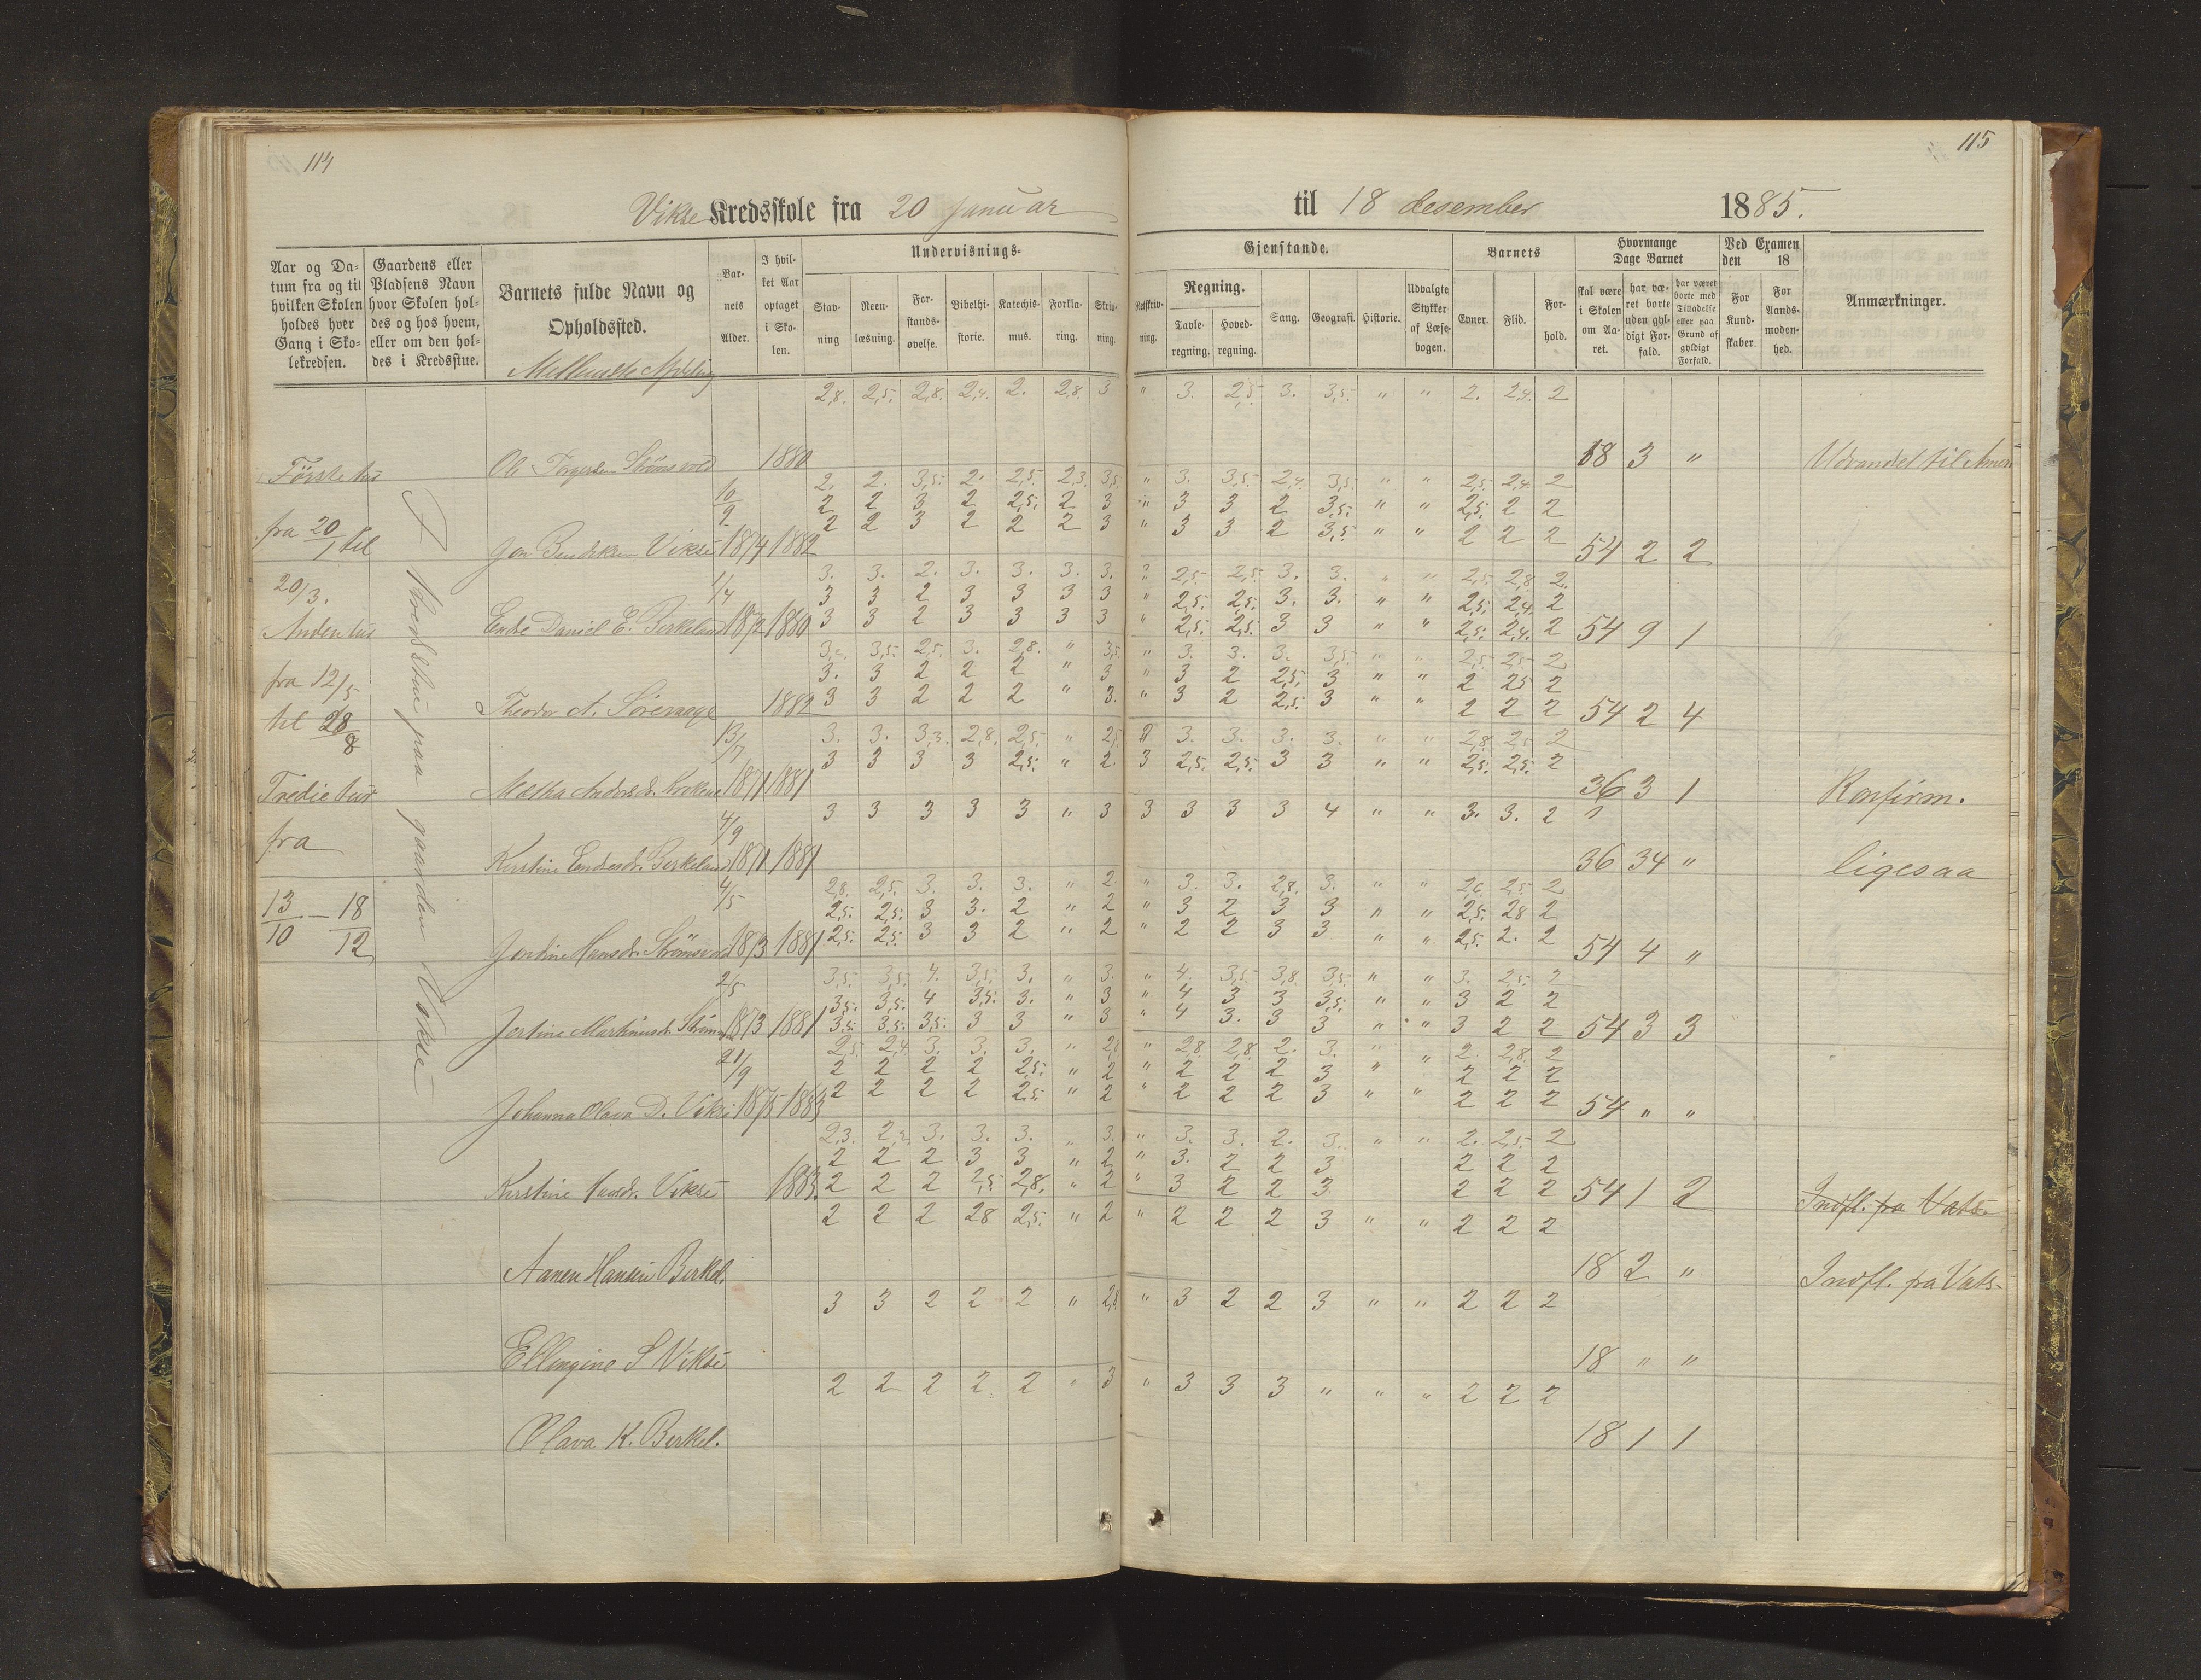 114
Vikse Kredsskole fra 20 Januar
Aar og Da-
tum fra og til
hvilken Skolen
holdes hver
Gang i Sko-
lekredsen.
Gaardens eller
Pladsens Navn
hvor Skolen hol-
des og hos hvem,
eller om den hol-
des i Kredsstue.
Barnets fulde Navn og
Opholdssted.
Bar-
nets
Alder.
I hvil-
ket Aar
optaget
i Sko-
len.
Undervisnings-
Stav-
ning
Reen-
læsning.
For-
stands-
øvelse.
Bibelhi-
storie.
Katechis-
mus.
Forkla-
ring.
Skriv-
ning.
2,8. 2,5. 2,8. 2,4. 2. 2,8. 3
Første tur
fra 20/1 til
20/3.
Anden tur
fra 12/5
til 28/8
Tredie tur
fra
13/10 — 18/12
I Kredsstue paa gaarden Vikse
Ole Torgersen Strømsvold 1880
2. 2. 3,5. 2. 2,5. 2,3. 3,5
10/9 2 2 3 2 2,5. 2 3
2 2 3 2 2 2 3
Jon Bendiksen Vikse 1874 1882
3. 3. 2. 3. 3. 3. 3.
1/4 3 3 2 3 3 3 3
Endre Daniel E. Birkeland 1872 1880 3 3 2 3 3 3 3
3,2. 3,5. 2,5. 3. 2,8. " 3,5
3. 3 2 2 2 " 3
Theodor A. Sørevaage 1882 3 3 2 2 2 " 3.
13/7 3. 3. 3,3. 2,8. 2,5. " 2,5
3 3 3 3 2,5. " 2.
Maltha Andersdr. Krokene 1871 1881
4/9 3 3 3 3 3 " 3
Kirstine Endresdr. Birkeland 1871 1881
4/5 2,8. 2,5. 3. 3. 3. " 2
2,5. 2,5. 3 3. 2 " 2
Jordine Hansdr. Strømsvold 1873 1881 2,5. 2,5. 3 3 2 " 2
2/5 3,5. 3,5. 4. 3,5. 3. " 3.
3,5. 3,5. 4 3,5. 3. " 3
Jertine Martinusdr. Strømsv 1873 1881 3,5. 3,5. 3,5. 3 3 " 3
21/9 2,5. 2,4 3. 3. 3. " 2,8
2 2 2 2 2,5. " 2
Johanna Olava D. Vikse 1875 1883 2 2 2 2 2,5. " 2
2,3. 2,2 3. 3. 3. " 3.
2 2 2 3 3 " 2
Kirstine Hansdr. Vikse 1883. 2 2 2 2,5. 2,8. " 2
2 2 2 28 2,5. " 2
Aanen Hansen Birkel.
3 3 2 2 2 " 2,8
Ellengine S Vikse
2 2 2 2 2 " 3
Olava K. Birkel.
115
til 18 desember 1885.
Gjenstande.
Retskriv-
ning.
Regning.
Tavle-
regning.
Hoved-
regning.
Sang.
Geografi.
Historie.
Udvalgte
Stykker
af Læse-
bogen.
Barnets
Evner.
Flid.
For-
hold.
Hvormange
Dage Barnet
skal være
i Skolen
om Aa-
ret.
har væ-
ret borte
uden gyl-
digt For-
fald.
har været
borte med
Tilladelse
eller paa
Grund af
gyldigt
Forfald.
Ved Examen
den 18
For
Kund-
skaber.
For
Aands-
moden-
hed.
Anmærkninger.
" 3. 2,5 3. 3,5. " " 2. 2,4. 2
18 3 " Udvandet til Amer
" 3. 3,5. 2,4. 3,5. " " 2,5. 2,4 2
" 3 3 2 3,5. " " 2,5. 2 2
" 3 3 2 3,5. " " 2 2 2
54 2 2
" 2,5. 2,5. 3. 3. " " 2,5. 2,8. 2.
" 2,5. 2,5. 3. 3. " " 2,5. 2,4. 2
" 2,5. 2,5. 3 3 " " 2,5. 2,4. 2 54 9 1
" 3. 3. 3. 3,5. " " 2,5. 2,5. 2
" 3 2 2,5. 3 " " 2 25 2
" 3 2 2,5. 3 " " 2 2 2 54 2 4
" 3. 3. 3. 3. " " 2,8. 2,5 2
3 2,5. 2,5. 3 3 " " 2,5. 2,5. 2
36 3 1 Konfirm.
3 3 3 3 4 " " 3. 3. 2
36 34 " ligesaa
" 3. 3. 2,8. 3. " " 26 2,5. 2
" 3 2 3 3 " " 2,5. 28 2
" 2 2 3 3 " " 2,5. 2. 2
54 4 "
" 4. 3,5. 3,8. 3,5. " " 3. 2,5 2
" 4 3 3 3,5. " " 3 2 2
" 4 3. 3 3 " " 3 2 2 54 3 3
" 2,8. 2,8. 2. 3. " " 2. 2,8. 2
" 2 2 2 3 " 2 2 2
" 2 2 2 3 " " 2 2 2 54 " "
" 3. 3. 2. 3. " " 2. 2,5. 2
" 3. 2 2 3 2 2 2
" 3 2 2 3 2 2 2 54 1 2 Indfl. fra Vats.
" 2 2 2 3 " " 2 2 2
18 2 " Indfl. fra Vats.
" 3 2 2 3 " " 2 2 2
18 " "
" 3 3 3 " " " 2 2 2
18 1 1